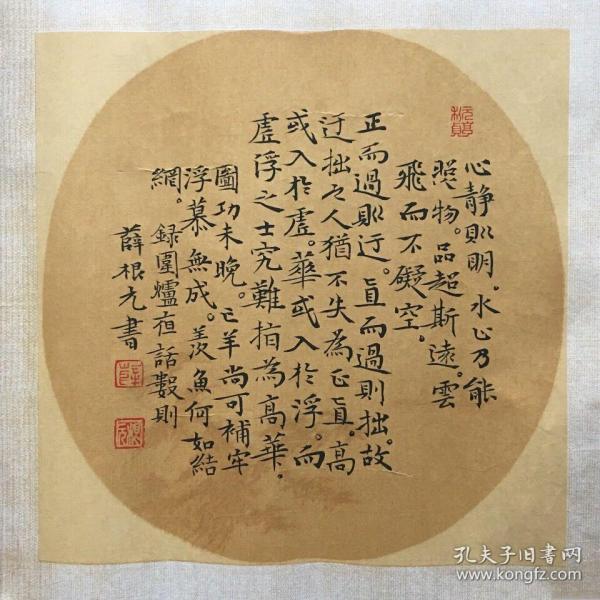 心靜則明。水止乃能
照物。品超斯遠。雲
飛而不礙空。
正而過則迂。直而過則拙。故
迂拙之人猶不失為正直。高
或入於虛。華或入於浮。而
虛浮之士究難指為高華。
圖功未晚。亡羊尚可補牢
浮慕無成。羨魚何如結
網。錄圍爐夜話數則
薛根書
孔夫子旧书网
www.kongfz.com